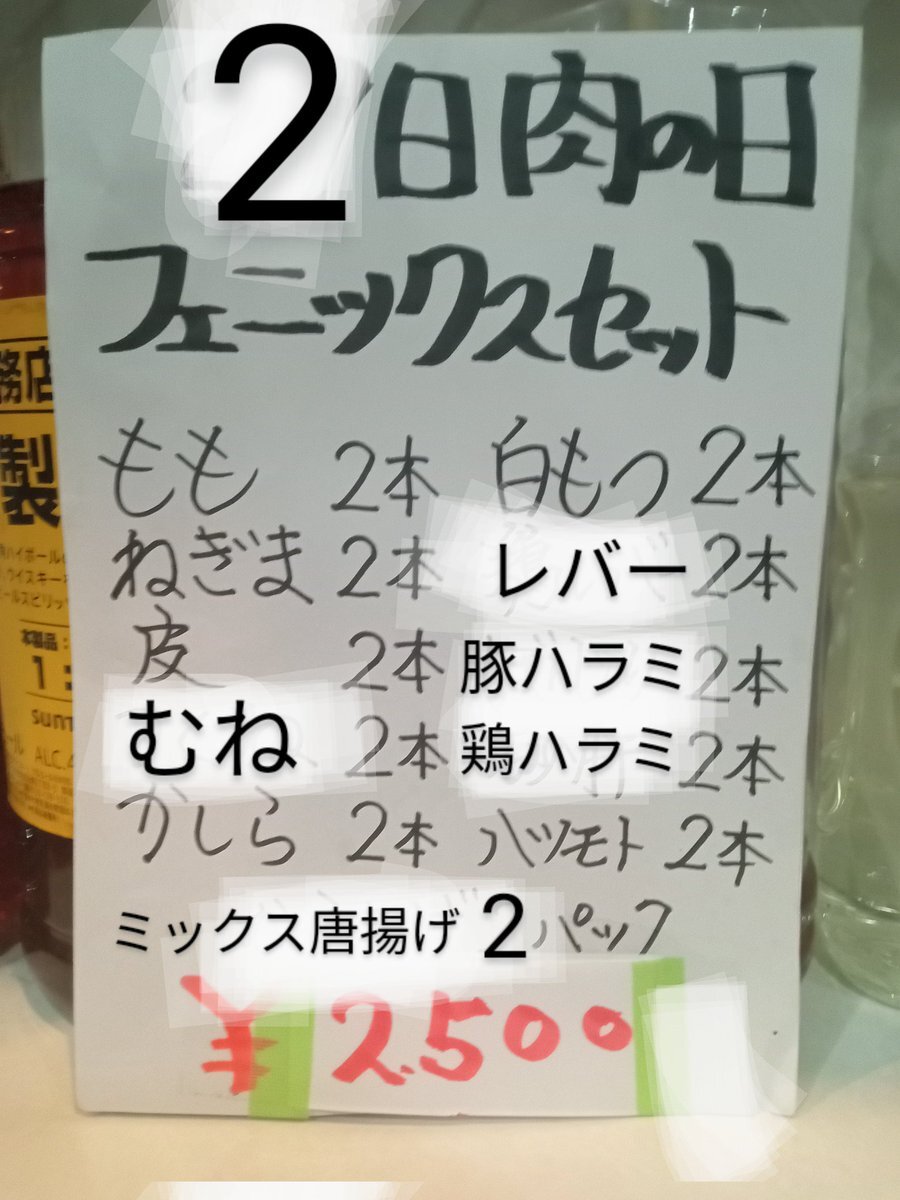 2日肉の日
フェニックスセット
もも 2本 白もつ 2本
ねぎま 2本 レバー 2本
皮 2本 豚ハラミ 2本
むね 2本 鶏ハラミ 2本
かしら 2本 ハツモト 2本
ミックス唐揚げ 2パック
¥2,500
務店
製
本製品
1:
ALC.4